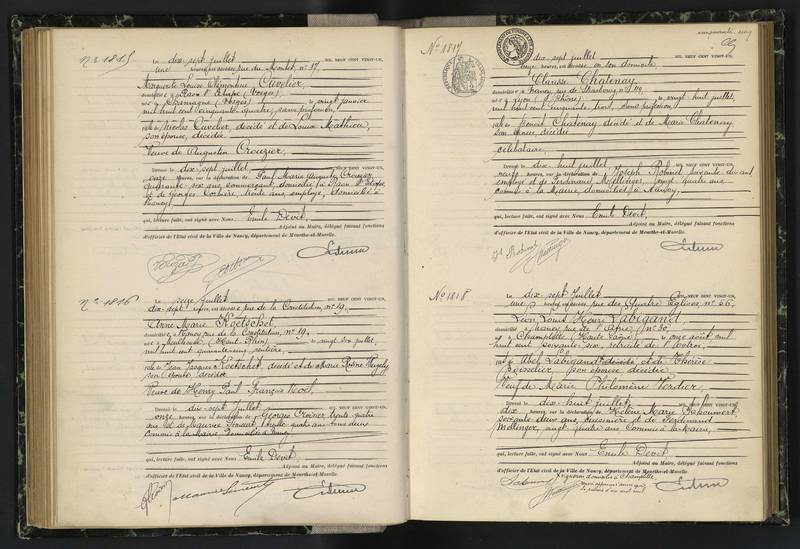 No 1815
Le dix-sept juillet mil neuf cent vingt-un,
une heures, en sa rue du Montet, no 37,
Marguerite Louise Clémentine Cuvelier,
domiciliée à Raon l'Etape (Vosges)
née à (Vosges) le vingt janvier
mil huit cent cinquante quatre, sans profession,
fille de Nicolas Cuvelier, décédé et de Louise Mathieu,
son épouse, décédée
Veuve de Augustin Crouzier
Dressé le dix-sept juillet mil neuf cent vingt-un,
onze heures, sur la déclaration de Paul Marie Auguste Crouzier,
quarante six ans, commerçant, domicilié à Raon l'Etape
et de Georges trente ans, employé, domicilié à
Nancy
qui, lecture faite, ont signé avec Nous Emile Devit,
Adjoint au Maire, délégué faisant fonctions
d'officier de l'Etat civil de la Ville de Nancy, département de Meurthe-et-Moselle.
No 1816
Le seize juillet mil neuf cent vingt-un,
dix-sept heures, en sa rue de la Constitution, no 19,
Anne Marie Koetschet
domiciliée à Nancy rue de la Constitution, no 19,
née à Mulhouse (Haut Rhin) le vingt juin,
mil huit cent quarante rentière,
fille de Jean Jacques Koetschet, décédé et de Marie Rosine
son épouse décédée
Veuve de Henry Paul François Noël,
Dressé le dix-sept juillet mil neuf cent vingt-un,
onze heures, sur la déclaration de Georges trente quatre
ans et de Maurice quatre ans tous deux
Commis à la Mairie, domiciliés à Nancy
qui, lecture faite, ont signé avec Nous Emile Devit,
Adjoint au Maire, délégué faisant fonctions
d'officier de l'Etat civil de la Ville de Nancy, département de Meurthe-et-Moselle.
No 1817
Le dix-sept juillet mil neuf cent vingt-un,
onze heures, en son domicile
Clarisse Chatenay
domiciliée à Nancy, rue de Strasbourg no 119
née à Lyon (Rhône) le vingt huit juillet,
mil huit cent cinquante trois, sans profession,
fille de Benoit Chatenay décédé et de Marie Chatenay
son épouse, décédée
célibataire,
Dressé le dix-huit juillet mil neuf cent vingt-un,
neuf heures, sur la déclaration de Joseph soixante dix ans
employé et de Ferdinand Mollinger, vingt quatre ans
commis à la Mairie, domiciliés à Nancy,
qui, lecture faite, ont signé avec Nous Emile Devit,
Adjoint au Maire, délégué faisant fonctions
d'officier de l'Etat civil de la Ville de Nancy, département de Meurthe-et-Moselle.
No 1818
Le dix-sept juillet mil neuf cent vingt-un,
une heures, en sa rue des Quatre Eglises, no 56,
Léon Louis Henri Labigand
domicilié à Nancy rue de no 30
né à Champlitte (Haute Saône) le onze août mil
huit cent soixante six, retraité de l'Octroi,
fils de Abel Labigand décédé et de Thérèse
son épouse décédée
Veuf de Marie Philomène Verdier,
Dressé le dix-huit juillet mil neuf cent vingt-un,
dix heures, sur la déclaration de Hélène Marie
soixante deux ans, cuisinière et de Ferdinand
Mollinger, vingt quatre ans Commis à la Mairie,
qui, lecture faite, ont signé avec Nous Emile Devit,
Adjoint au Maire, délégué faisant fonctions
d'officier de l'Etat civil de la Ville de Nancy, département de Meurthe-et-Moselle.